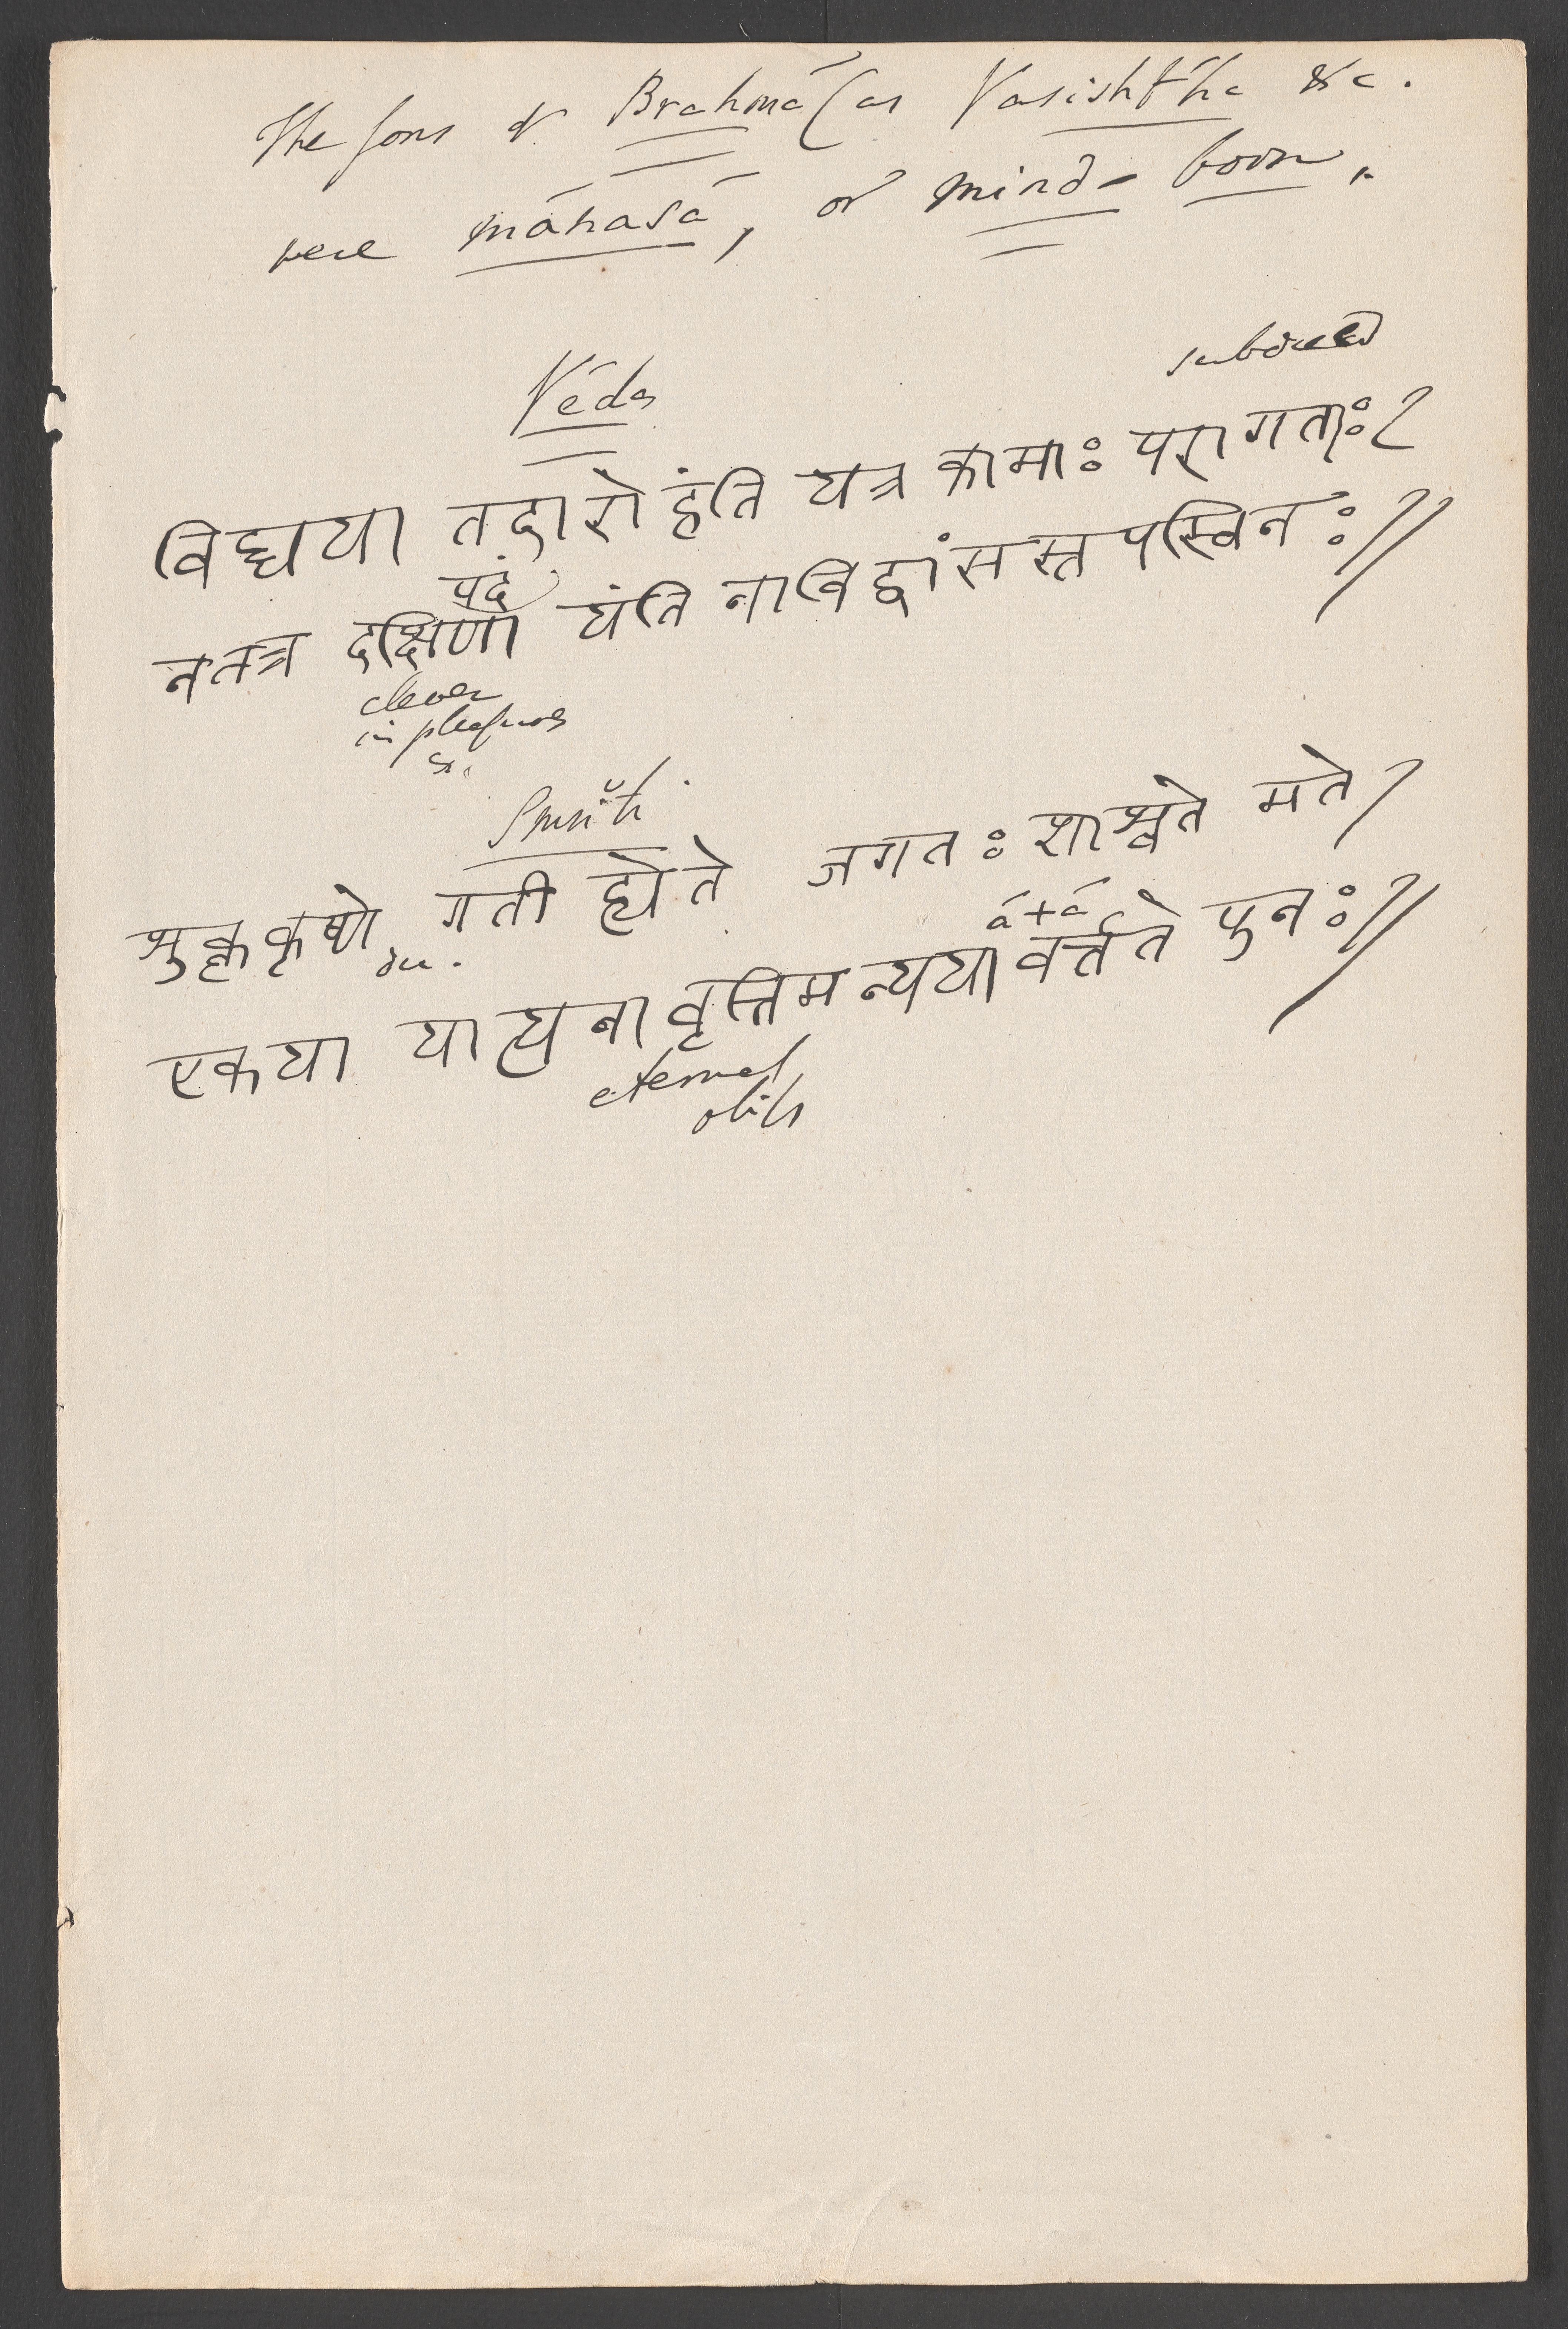 The sons of Brahmá (as Vasishtha &c.
were mánasá, or mind-born.
subdued
Véda
विद्यया तदारोहंति यत्र कामाः परागताः।
पदं
नतत्र दक्षिणां यंति नाविद्वांसस्तपस्विनः॥
clever
in pleasures
&c
Smriti
शुक्लकृष्णे गती ह्येते जगतः शाश्वते मते।
du.
á+á
एकया यात्यनावृत्तिमन्ययावर्त्तते पुनः॥
eternal